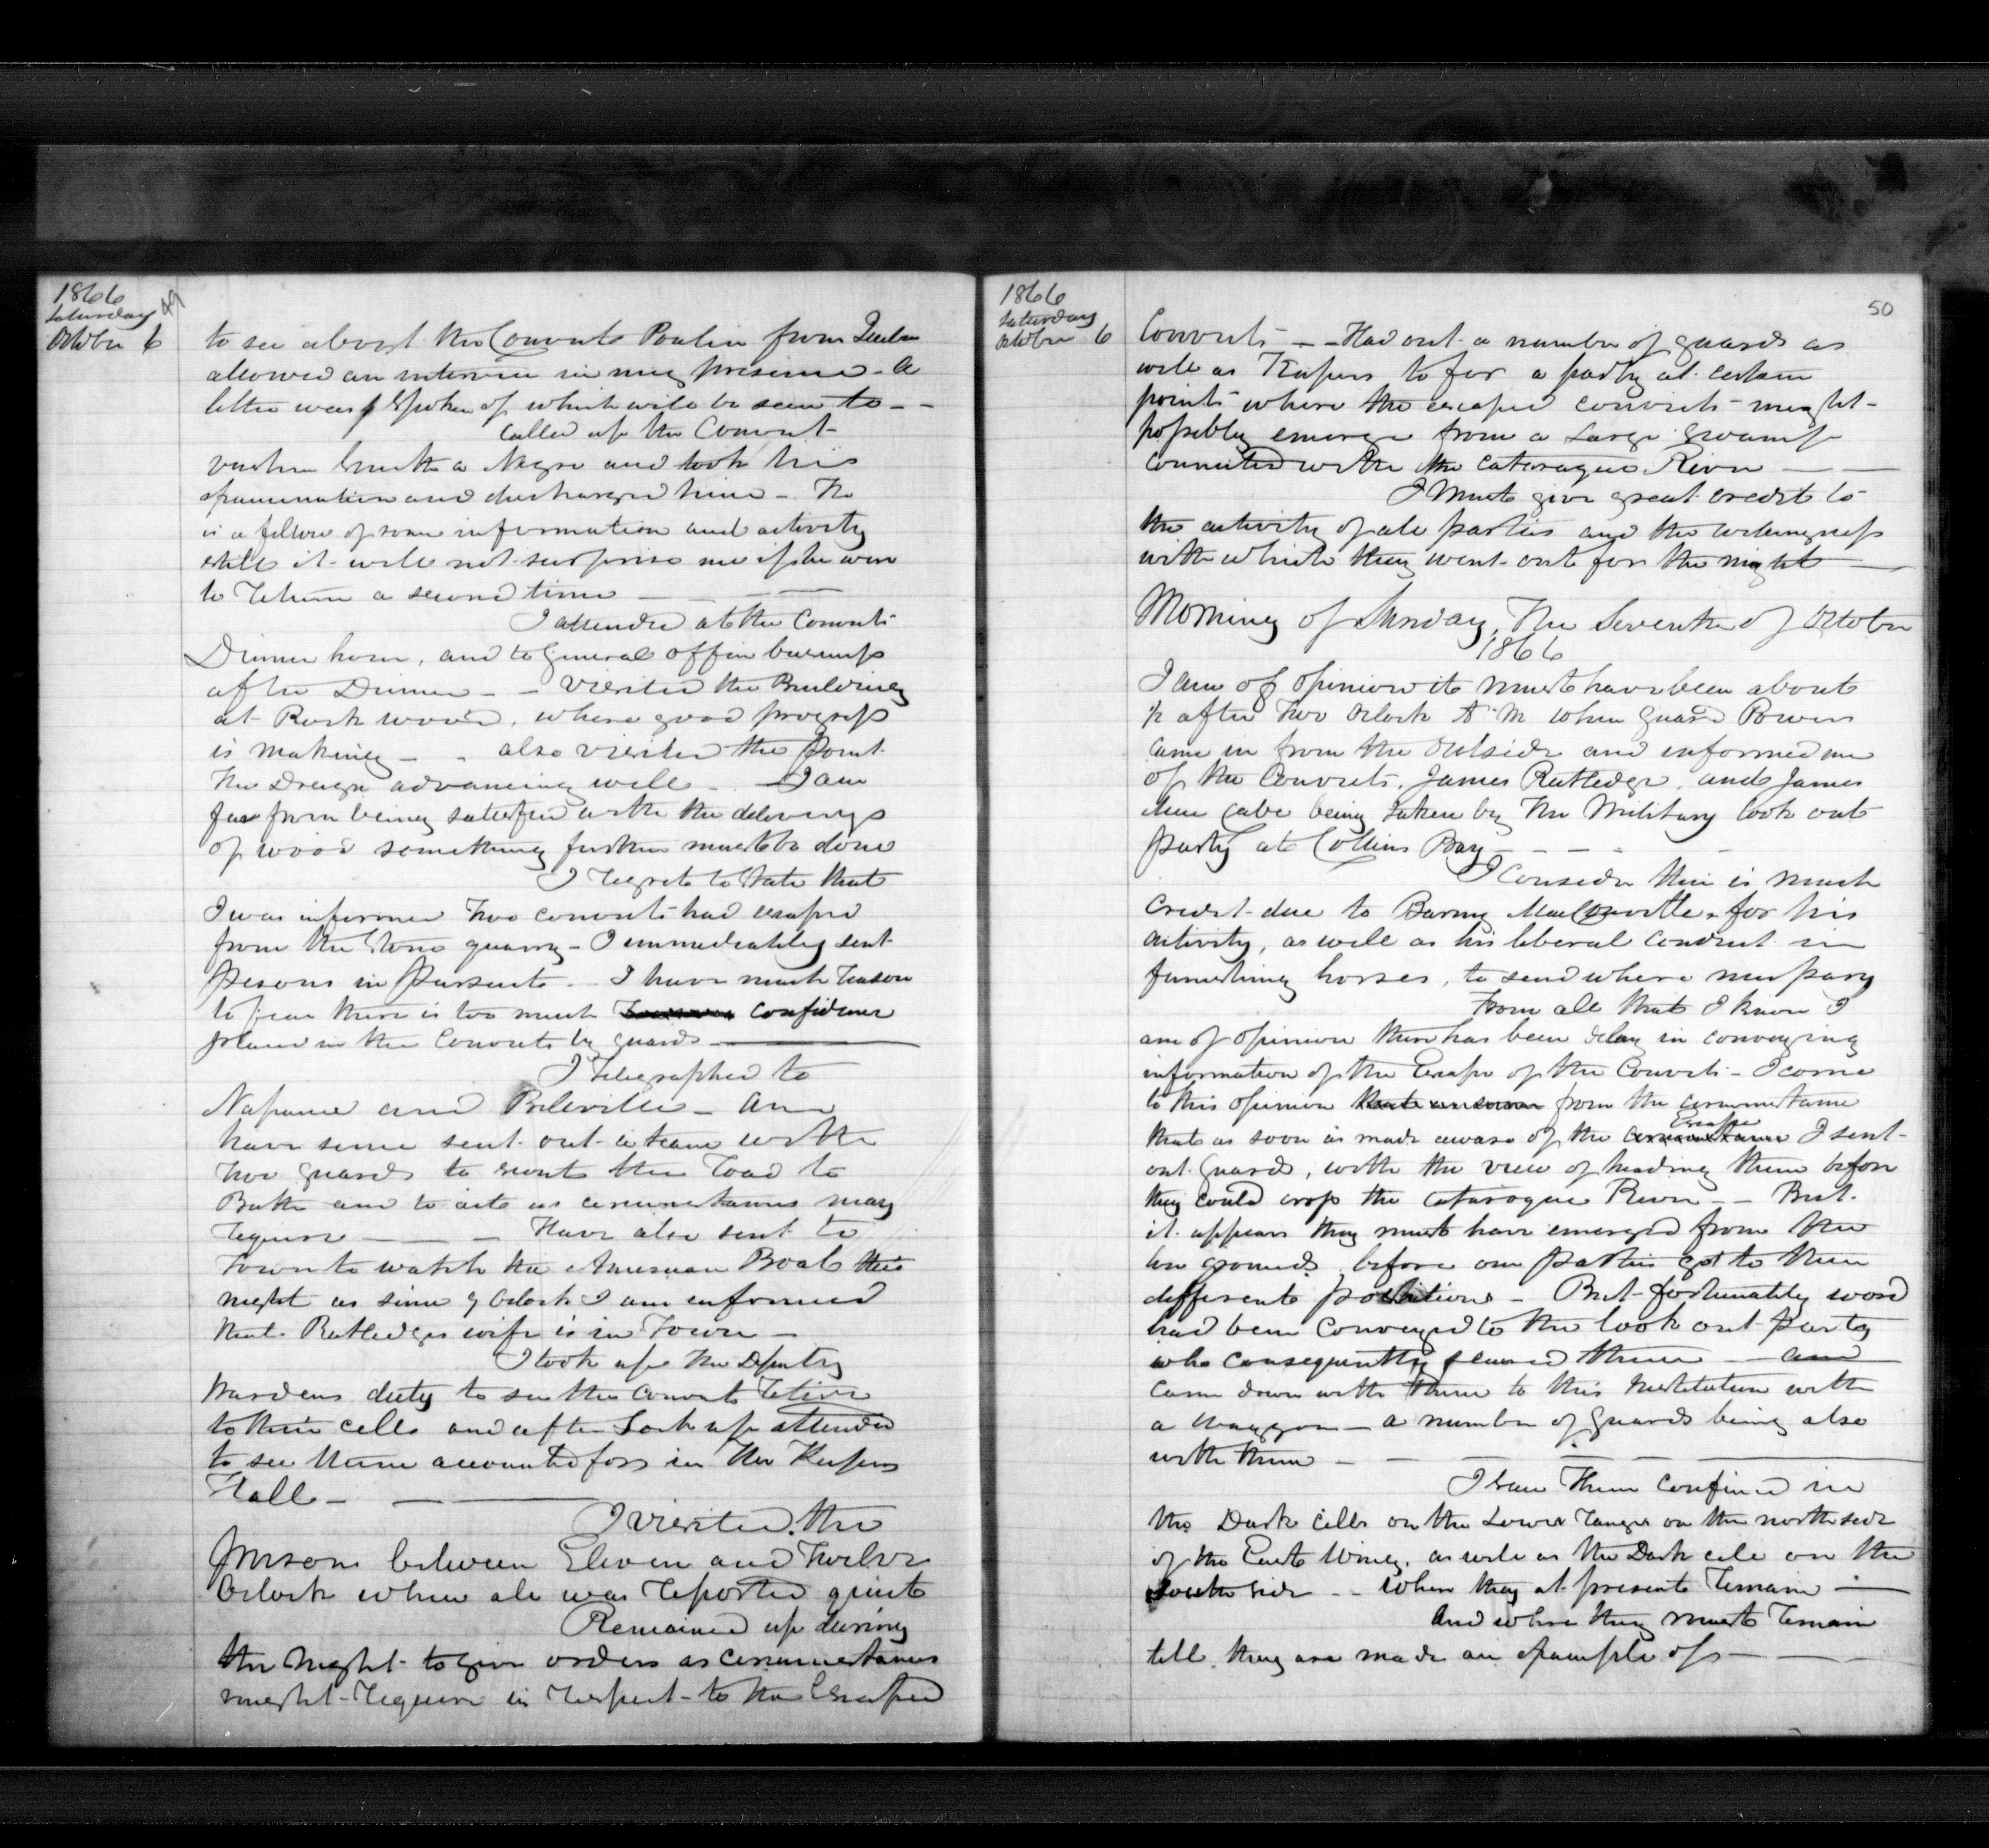 1866
Saturday
October 6
49
to see about the Convict Poulin from Quebec
allowed an interview in my presence - A
letter was spoken of which will be seen to - -
Called up the Convict
Smith a Negro and took his
examination and discharged him - He
is a fellow of some information and activity
still it will not surprise me if he were
to return a second time - - - -
I attended at the Convicts
Dinner hour, and to General office business
after Dinner - - Visited the Building
at Rockwood, where good progress
is making - - also visited the Point
the Dredge advancing well - I am
far from being satisfied with the delivery
of wood something further must be done
I regret to state that
I was informed two convicts had escaped
from the Stone quarry - I immediately sent
Persons in Pursuit - I have much reason
to fear there is too much confidence
placed in the Convicts by guards -
I Telegraphed to
Napanee and Belleville - and
have since sent out a team with
two guards to scout the road to
Bath and to act as circumstances may
require - - - Have also sent to
Town to watch the American Boat this
night as since 9 oclock I am informed
that Rutledges wife is in Town -
I took up the Deputy
Wardens duty to see the Convicts retire
to their cells and after Lock up attended
to see them accounted for in the Keepers
Hall - -
I visited the
Prison between Eleven and Twelve
Oclock when all was reported quiet
Remained up during
the Night to give orders as circumstances
might require in respect to the Escaped
1866
Saturday
October 6
50
Convicts - - Had out a number of guards as
well as Keepers to for a party at certain
points where the escaped convicts might
possibly emerge from a large swamp
connected with the Cataraque River - -
I Must give great credit to
the activity of all parties and the willingness
with which they went out for the night -
Morning of Sunday, The Seventh of October
1866
I am of opinion it must have been about
½ after Two Oclock A.M when guard Powers
came in from the outside and informed me
of the Convicts, James Rutledge, and James
being taken by the Military look out
party at Collins Bay - - - -
I consider there is much
credit due to for his
activity, as well as his liberal conduct in
furnishing horses, to send where necessary
From all that I know I
am of opinion there has been delay in conveying
information of the Escape of the Convicts - I come
to this opinion from the circumstance
that as soon as made aware of the Escape circumstance I sent
out guards, with the view of heading them before
they could cross the Cataraque River - - But
it appears they must have emerged from the
grounds before our parties got to their
different positions - But fortunately word
had been conveyed to the look out party
who consequently secured them - and
came down with them to this Institution with
a waggon - a number of guards being also
with them - - - - -
I saw them confined in
the Dark Cells on the Lower range on the north side
of the East Wing, as well as the Dark cell on the
South side - - Where they at present remain -
And where they must remain
till they are made an example of - - -